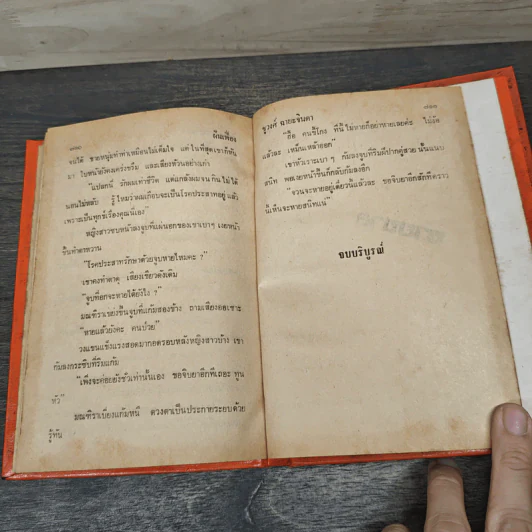 มีนเฟื่อง
จนได้ ชายหนุ่มทำท่าเหมือนไม่เต็มใจ แต่ในที่สุดเขาก็หัน
มา ใบหน้ายังคงเคร่งขรึม และเสียงห้วนอย่างเก่า
"แปลกนี่ รักผมเท่าชีวิต แต่แกล้งผมจนกินไม่ได้
นอนไม่หลับ รู้ไหมว่าผมเกือบจะเป็นโรคประสาทอยู่แล้ว
เพราะเป็นทุกข์เรื่องคุณเนี่ยง"
หญิงสาวซบหน้าลงจูบที่แผ่นอกของเขาเบาๆ เงยหน้า
ขึ้นทำตาหวาน
"โรคประสาทรักษาด้วยจูบหายไหมคะ ?"
เขาคงทำตาดุ เสียงเขียวดังเดิม
"จูบที่อกจะหายได้ยังไง ?"
มณฑิราเขย่งขึ้นจูบที่แก้มสองข้าง ถามเสียงออเซาะ
"หายแล้วยังคะ คนป่วย"
วงแขนแข็งแรงสอดมากอดรอบหลังหญิงสาวบ้าง เขา
ก้มลงกระซิบที่ริมแก้ม
"เพิ่งจะค่อยยังชั่วเท่านั้นเอง ขอจิบยาอีกทีเถอะ ทูน
หัว"
มณฑิราเบี่ยงแก้มหนี ดวงตาเป็นประกายระยบด้วย
รู้ทัน
จุวงศ์ ฉายะจินดา
"ถือ คนขี้โกง ทีนี้ ไม่หายก็อย่าหายเลยค่ะ ไม่รู้ด้
แล้วละ เหม็นเหล้าออก"
เขาหัวเราะเบา ๆ ก้มลงจูบที่ริมฝีปากคู่สวย นั้นแนบ
สนิท พอเงยหน้าขึ้นก็กลับก้มลงอีก
"จวนจะหายอยู่เดี๋ยวนี้แล้วละ ขอจิบยาอีกสักทีคราว
นี้เห็นจะหายสนิทแน่"
จบบริบูรณ์